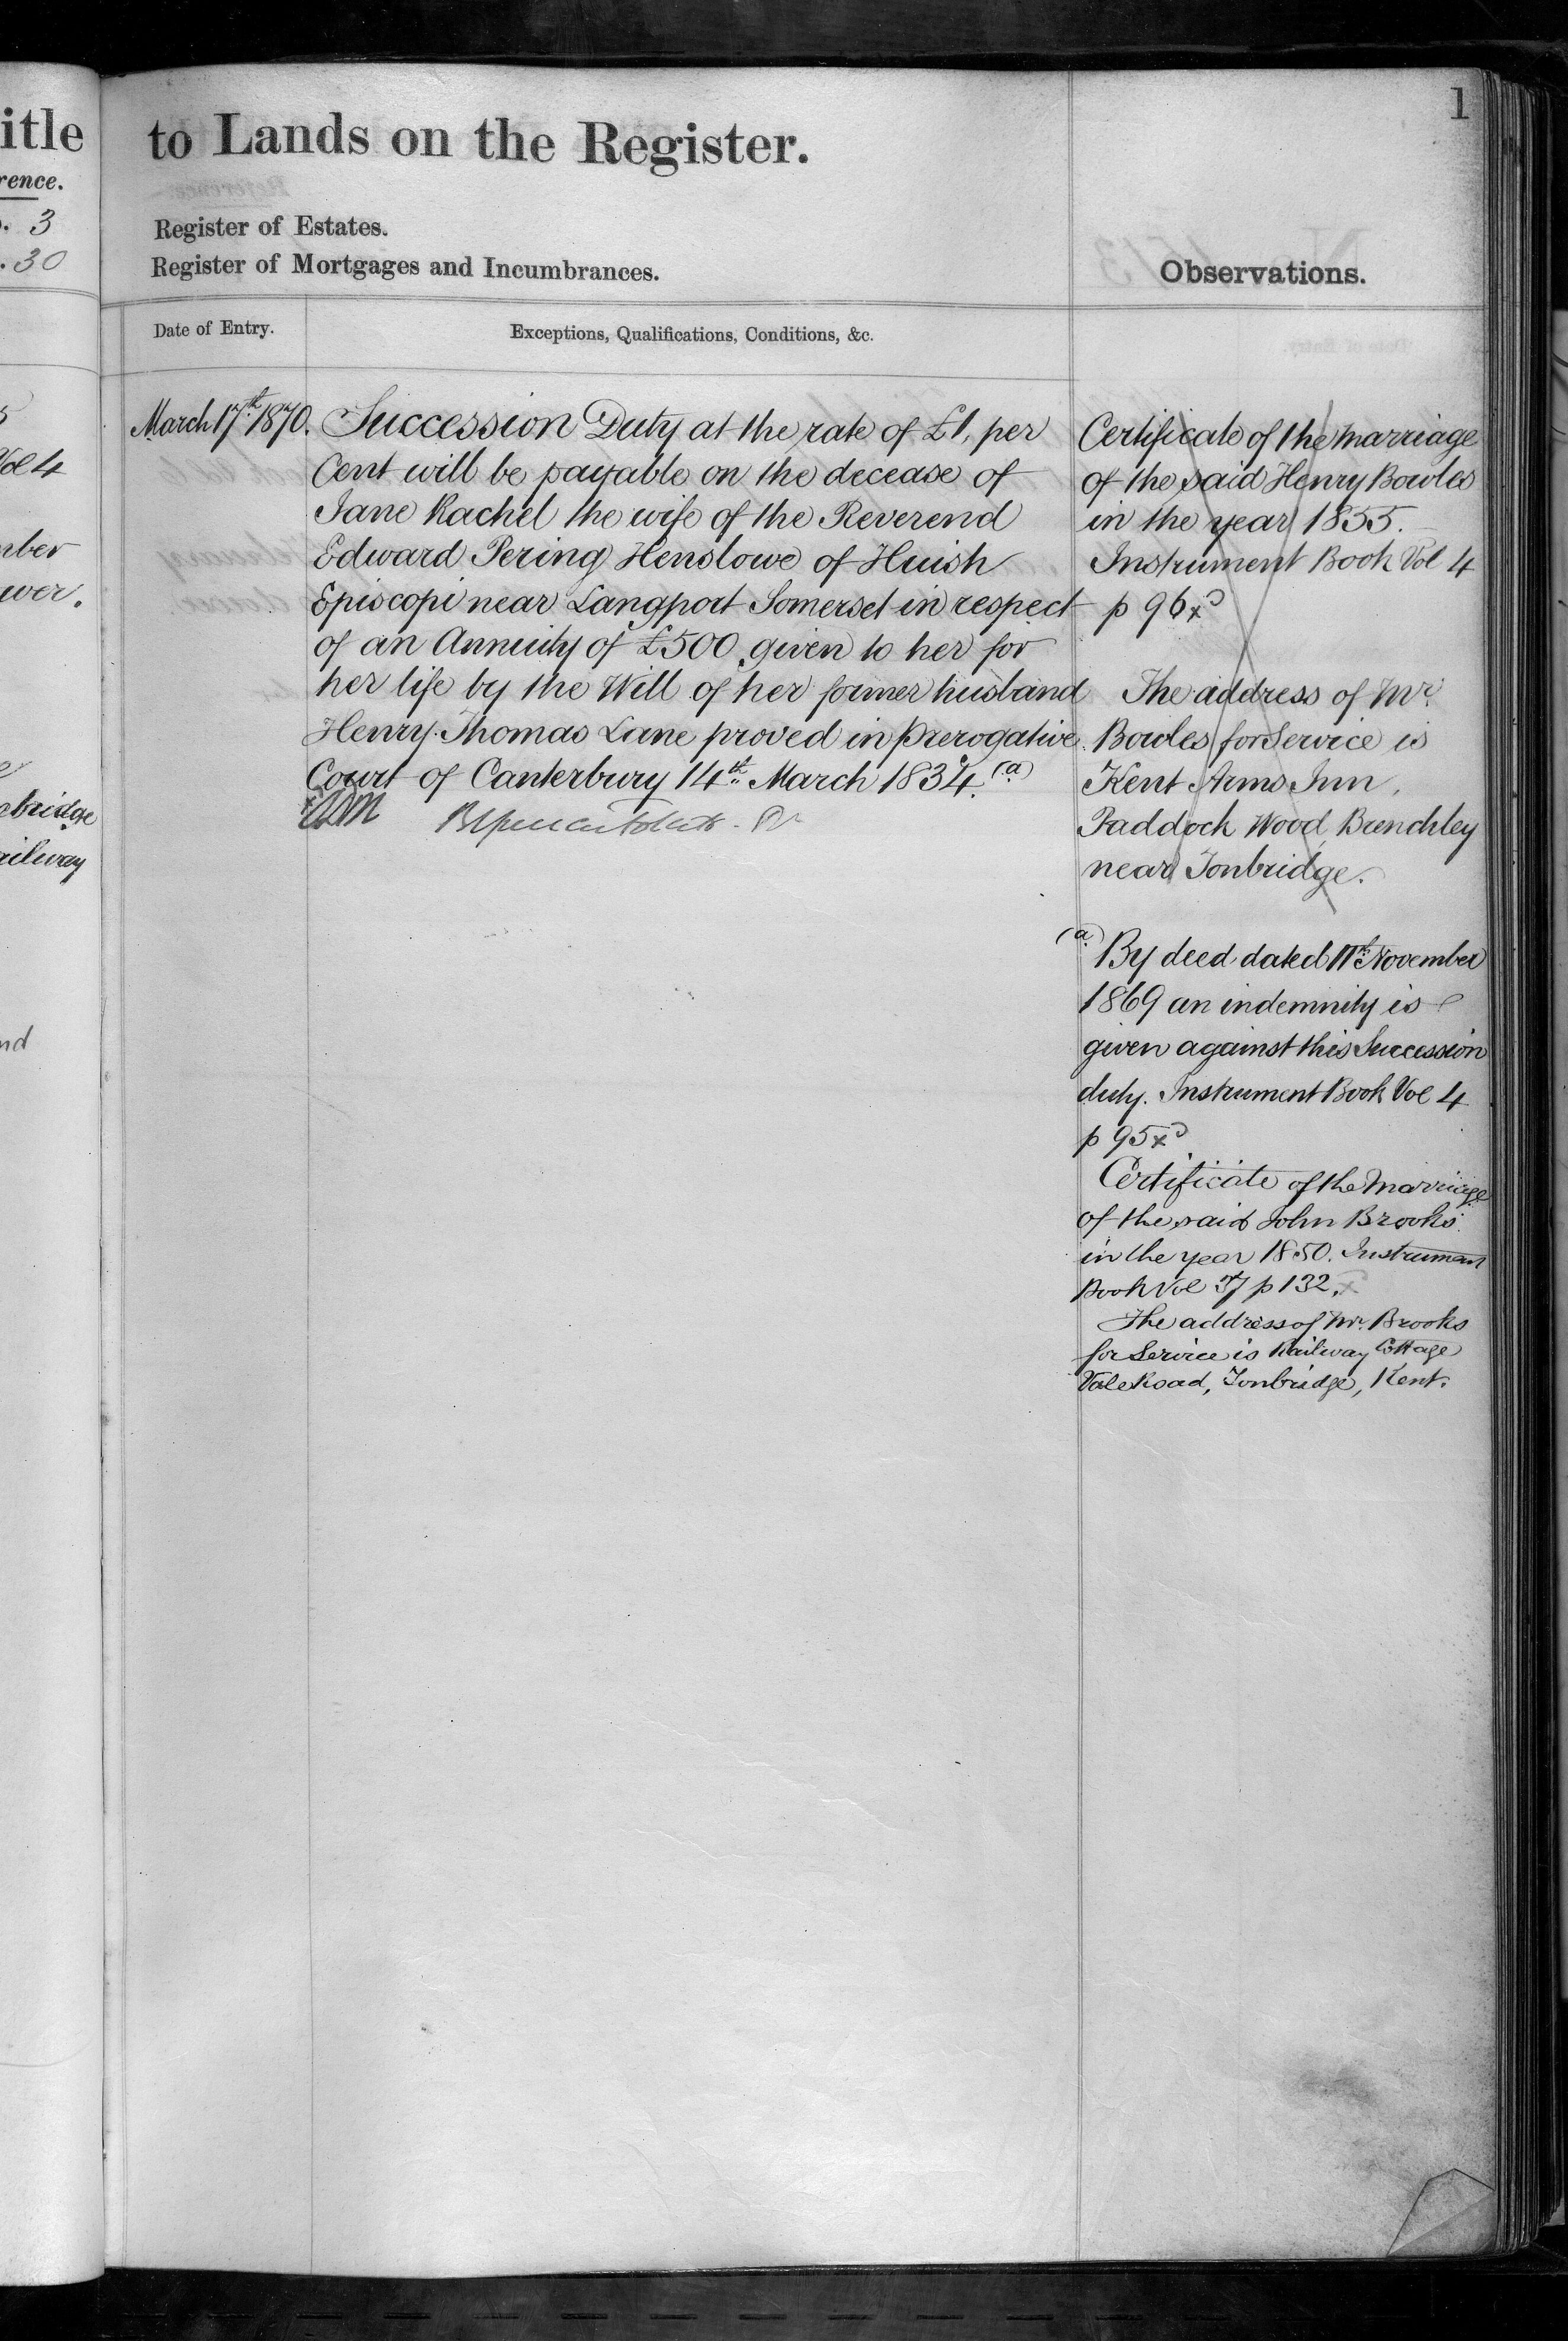 itle
rence.
. 3
. 30
Vol 4
mber
wer.
ebridge
ailway
nd
1
to Lands on the Register.
Register of Estates.
Register of Mortgages and Incumbrances.
Observations.
Date of Entry.
Exceptions, Qualifications, Conditions, &c.
March 17th 1870.
Succession Duty at the rate of £1, per
Cent will be payable on the decease of
Jane Rachel the wife of the Reverend
Edward Pering Henslowe of Huish
Episcopi near Langport Somerset in respect
of an Annuity of £500 given to her for
her life by the Will of her former husband
Henry Thomas Lane proved in Prerogative
Court of Canterbury 14th March 1834. (a)
Certificate of the marriage
of the said Henry Bowles
in the year 1855.
Instrument Book Vol 4
p 96 x
The address of Mr.
Bowles for Service is
Kent Arms Inn,
Paddock Wood, Brenchley
near Tonbridge.
(a) By deed dated 11th November
1869 an indemnity is
given against this Succession
duty. Instrument Book Vol 4
p 95 x
Certificate of the Marriage
of the said John Brooks
in the year 1850. Instrument
Book Vol 37 p 132. x
The address of Mr. Brooks
for Service is Railway Cottage
Vale Road, Tonbridge, Kent.